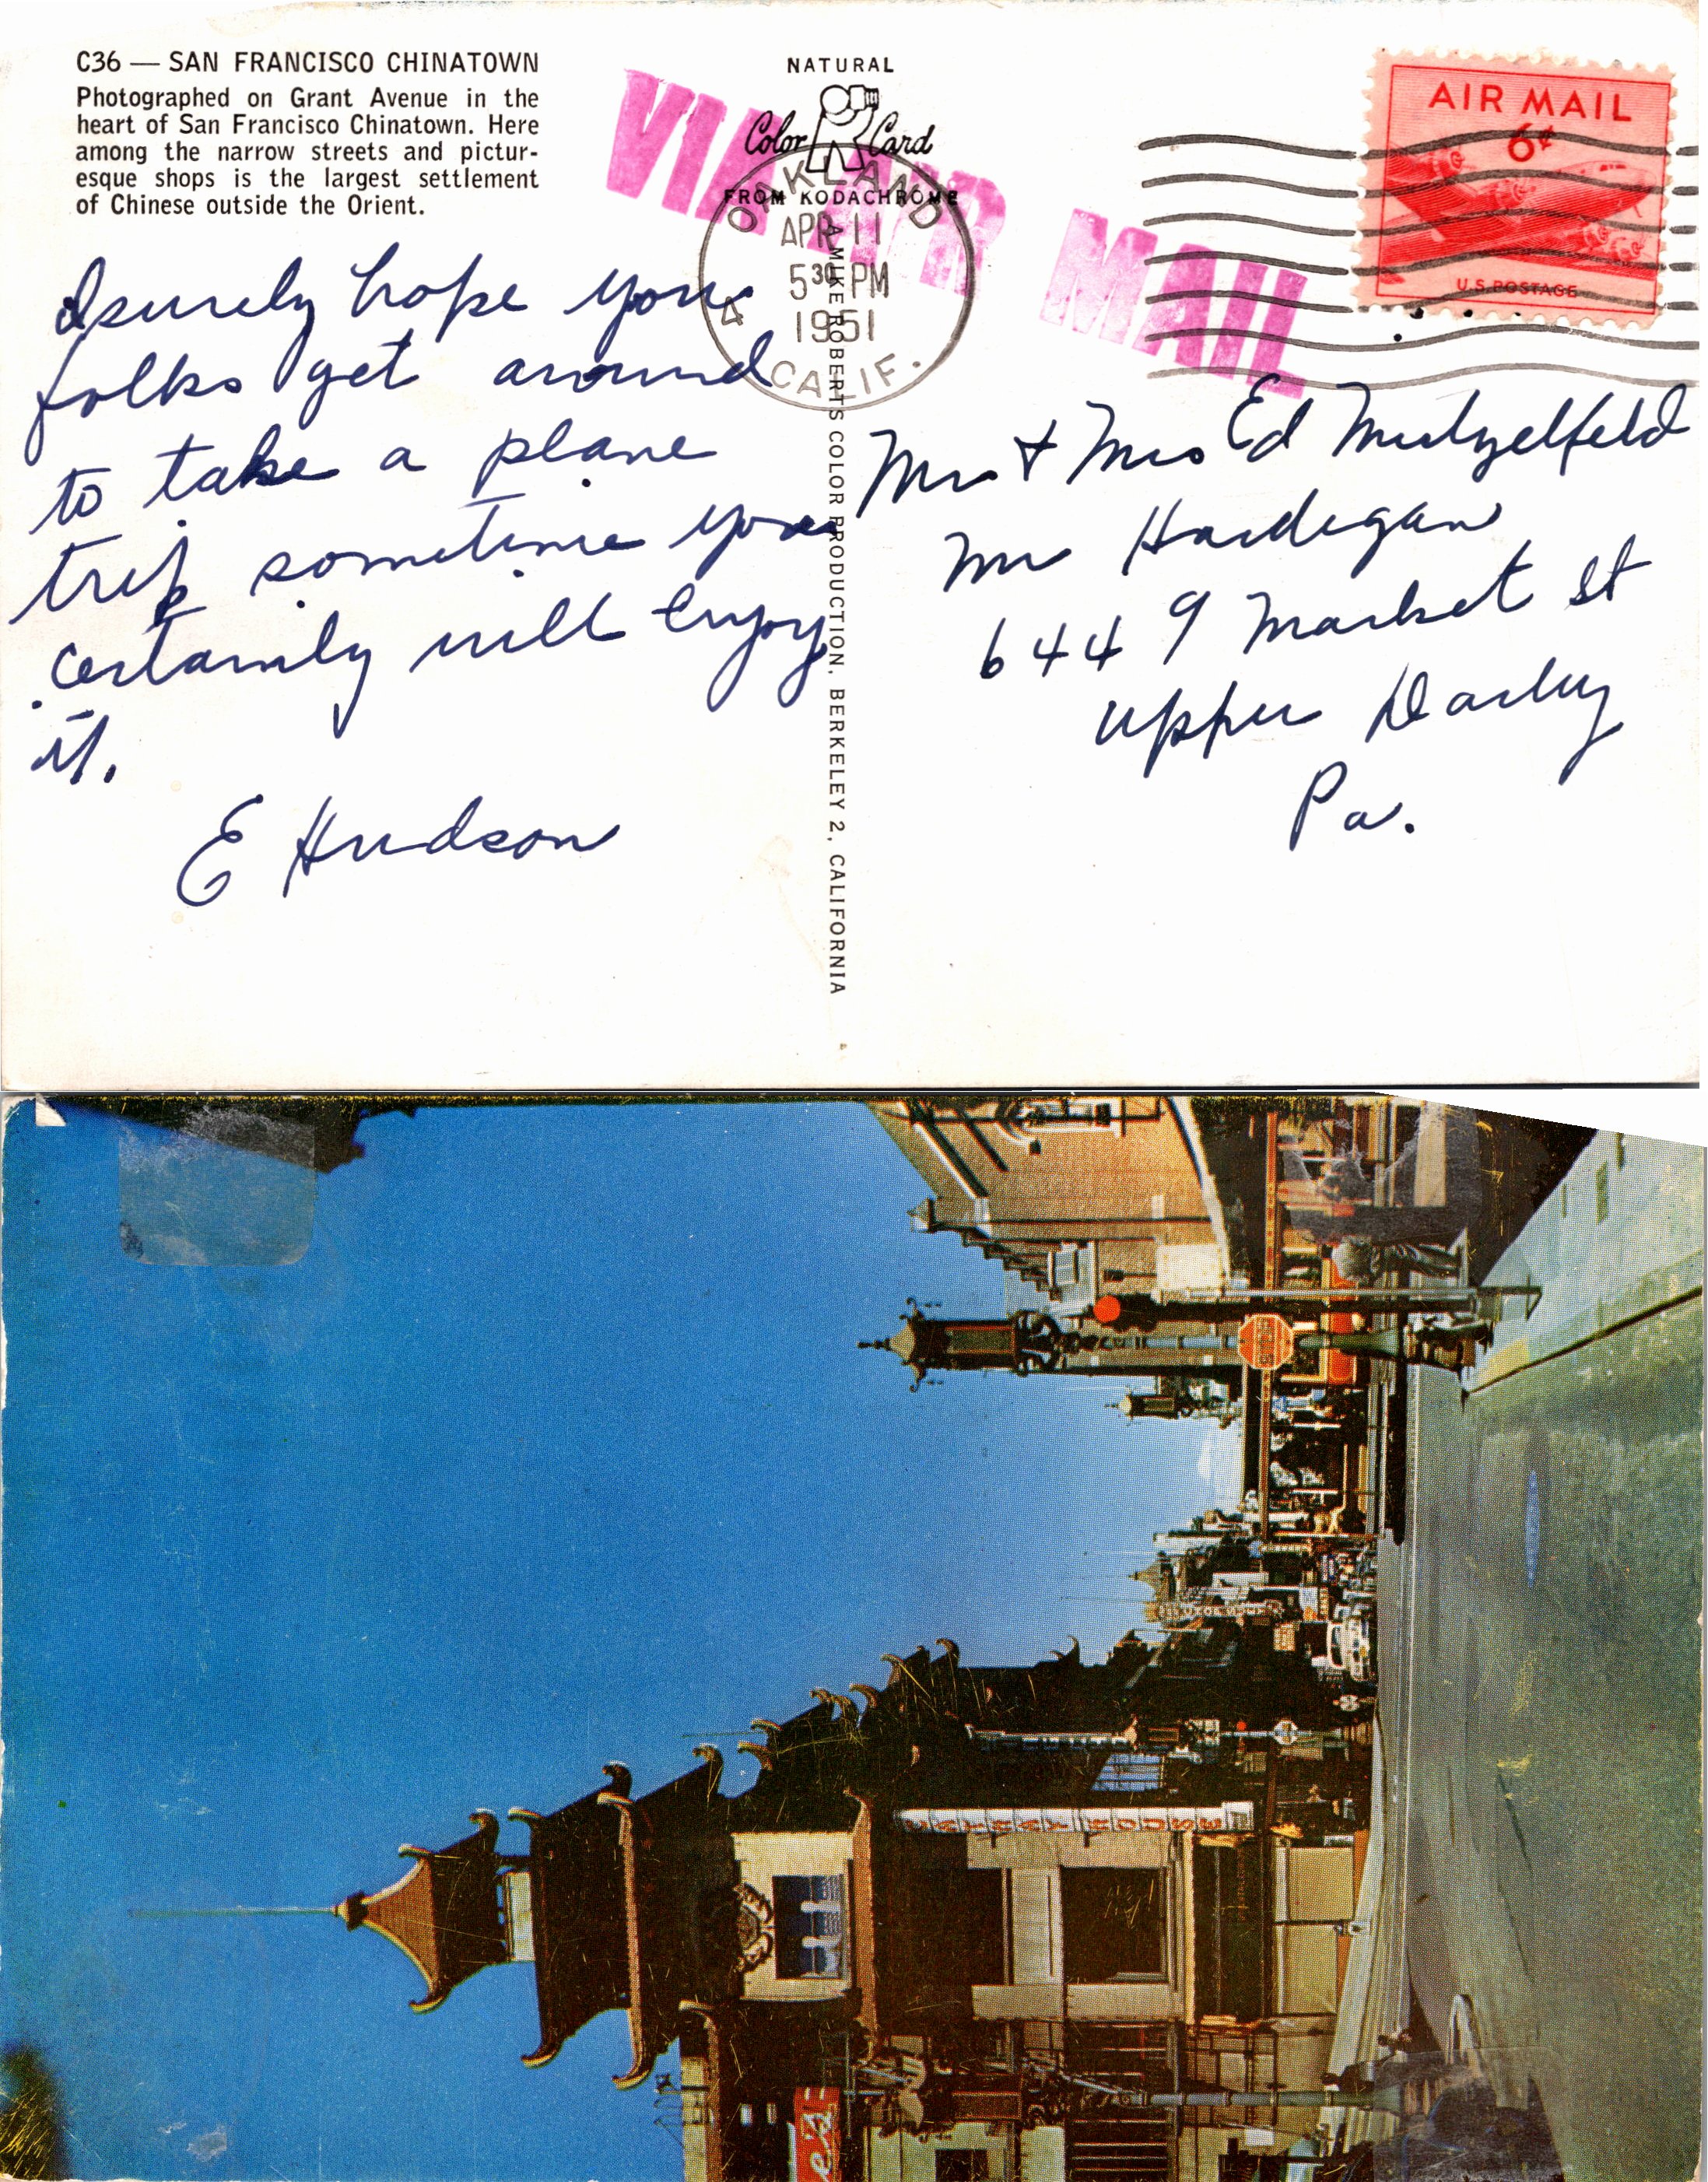 C36 — SAN FRANCISCO CHINATOWN
Photographed on Grant Avenue in the
heart of San Francisco Chinatown. Here
among the narrow streets and pictur-
esque shops is the largest settlement
of Chinese outside the Orient.
I surely hope you
folks get around
to take a plane
trip sometime you
certainly will enjoy
it.
E Hudson
NATURAL
Color Card
FROM KODACHROME
VIA AIR MAIL
OAKLAND
APR 11
5 30 PM
1951
4 CALIF.
A MIKE ROBERTS COLOR PRODUCTION, BERKELEY 2, CALIFORNIA
AIR MAIL
6¢
U.S. POSTAGE
Mr & Mrs Ed Mutzelfeld
Mr Hardigan
6449 Market St
Upper Darby
Pa.